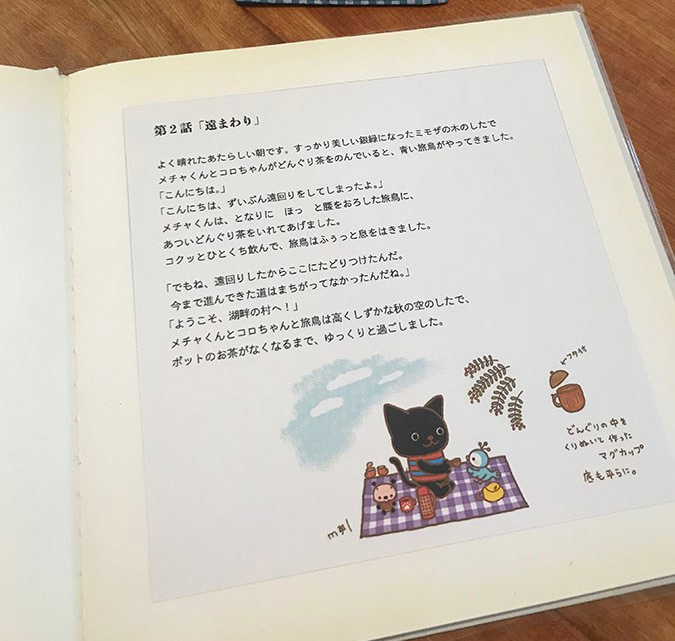 第2話「遠まわり」
よく晴れたあたらしい朝です。すっかり美しい銀緑になったミモザの木のしたで
メチャくんとコロちゃんがどんぐり茶をのんでいると、青い旅鳥がやってきました。
「こんにちは。」
「こんにちは、ずいぶん遠回りをしてしまったよ。」
メチャくんは、となりに　ほっ　と腰をおろした旅鳥に、
あついどんぐり茶をいれてあげました。
コクッとひとくち飲んで、旅鳥はふぅっと息をはきました。
「でもね、遠回りしたからここにたどりつけたんだ。
今まで進んできた道はまちがってなかったんだね。」
「ようこそ、湖畔の村へ！」
メチャくんとコロちゃんと旅鳥は高くしずかな秋の空のしたで、
ポットのお茶がなくなるまで、ゆっくりと過ごしました。
フタ付
どんぐりの中を
くりぬいて作った
マグカップ
底も平らに。